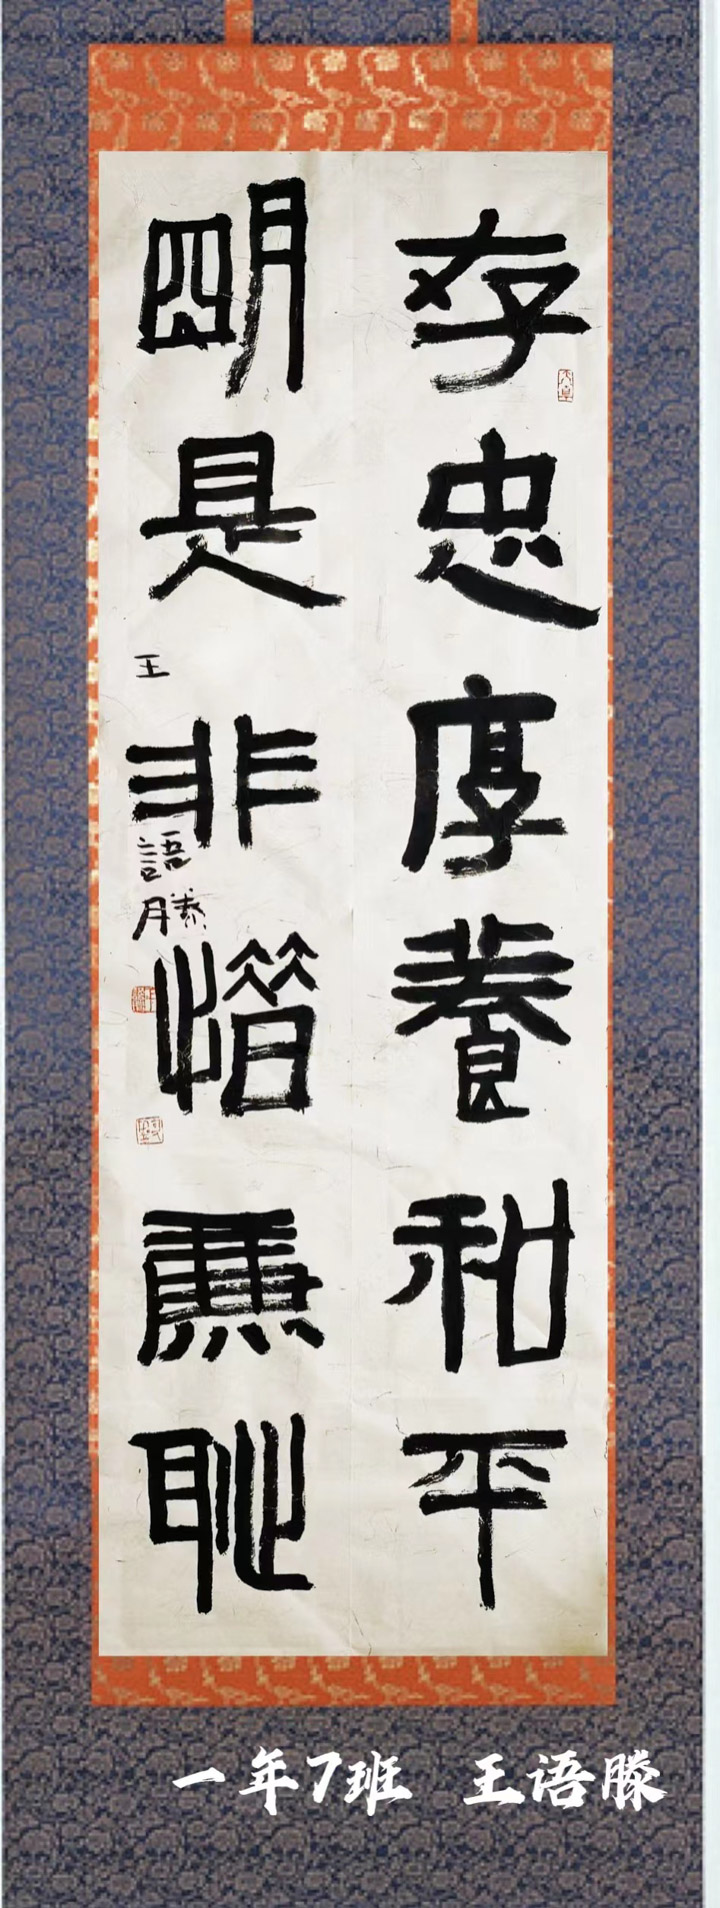 存忠厚養和平
朙是非惜廉恥
王語滕
一年7班 王语滕